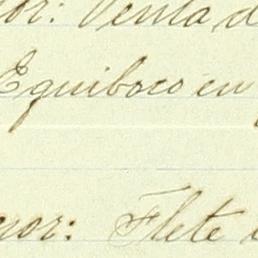 or: Venta d
Equiboco en
nor: Flete